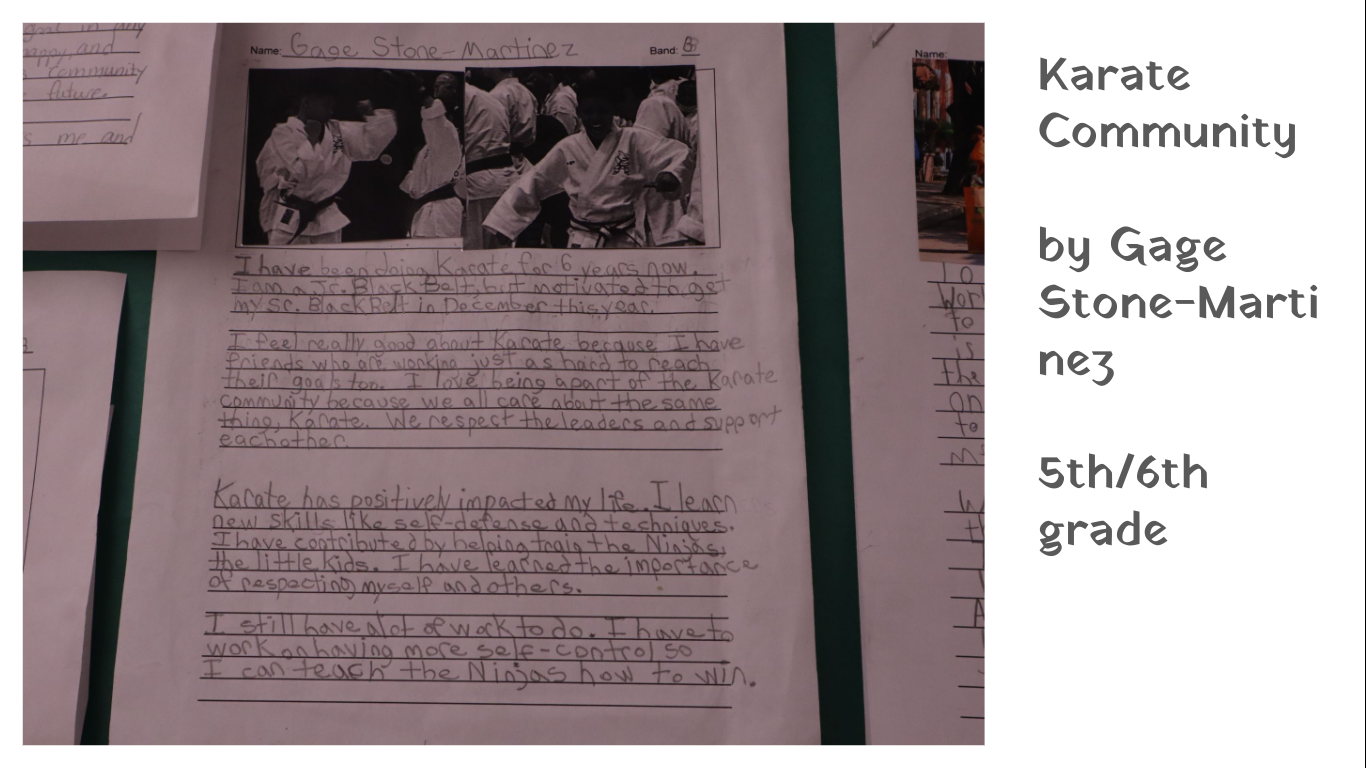 goal in any
happy, and
community
future.
s me and
Name: Gage Stone-Martinez Band: B
I have been doing Karate for 6 years now.
I am a Jr. Black Belt, but motivated to get
my Sr. Black Belt in December this year.
I feel really good about Karate because I have
friends who are working just as hard to reach
their goals too. I love being apart of the Karate
community because we all care about the same
thing, Karate. We respect the leaders and support
eachother.
Karate has positively impacted my life. I learn
new skills like self-defense and techniques.
I have contributed by helping train the Ninjas,
the little kids. I have learned the importance
of respecting myself and others.
I still have alot of work to do. I have to
work on having more self-control so
I can teach the Ninjas how to win.
Name:
to
is
the
on
to
Karate
Community
by Gage
Stone-Marti
nez
5th/6th
grade